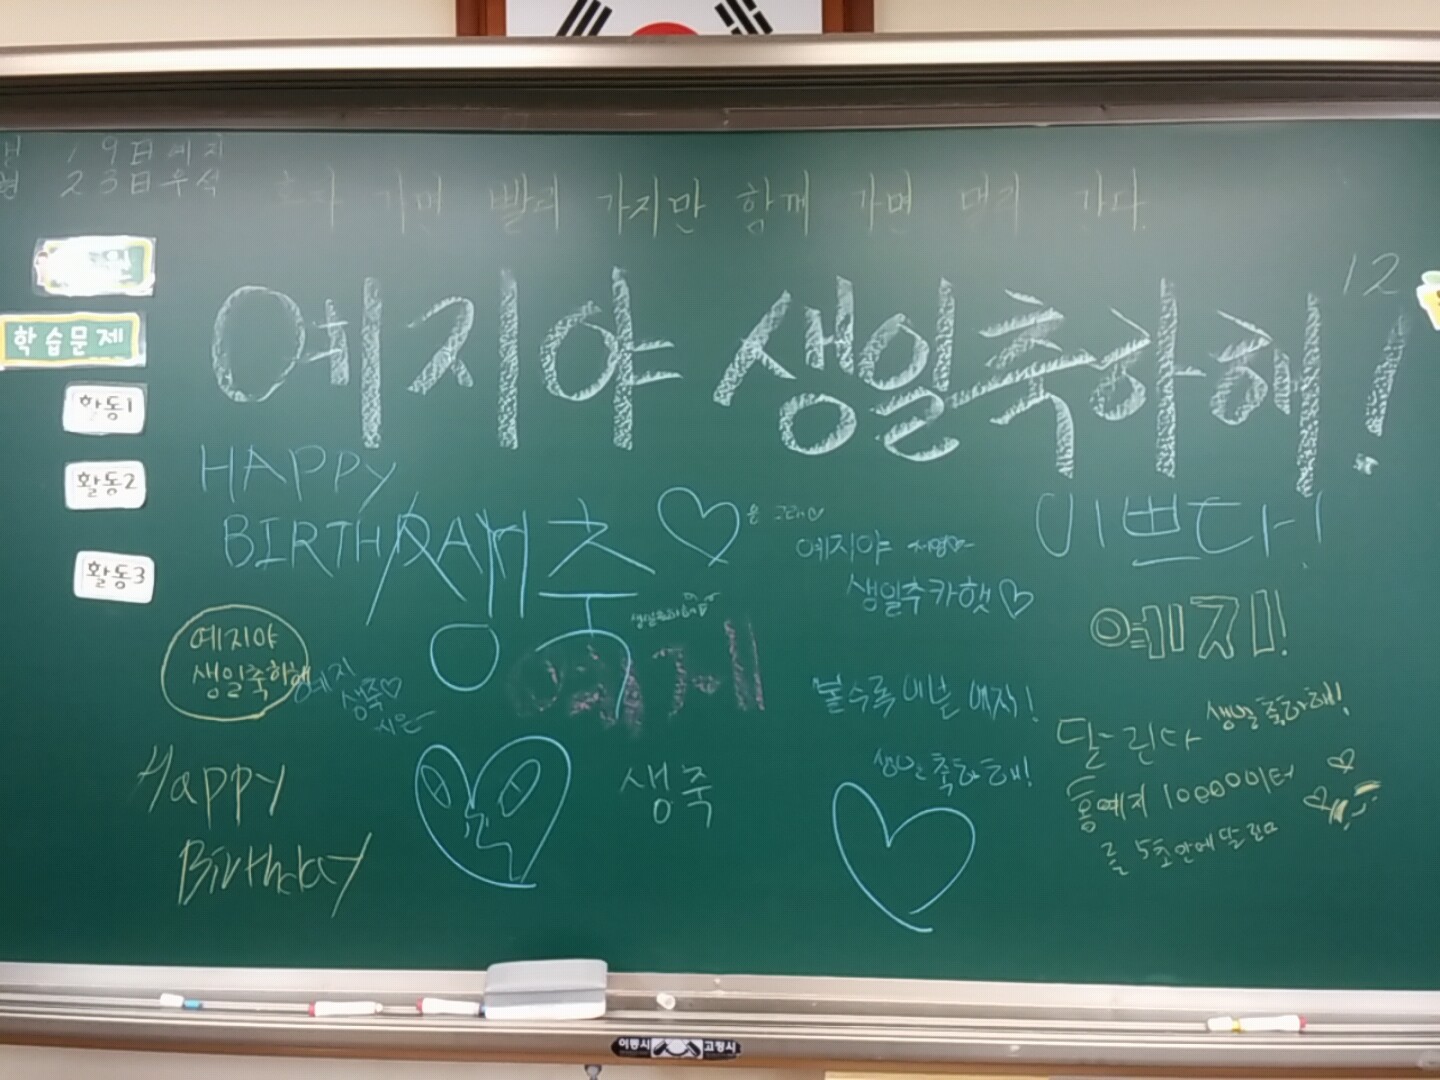 19日예지
23日우석
혼자 가면 빨리 가지만 함께 가면 멀리 간다.
12
학습문제
예지야 생일축하해!
활동1
HAPPY
활동2
BIRTHDAY
생축
예지야
이쁘다!
생일추카햇♡
활동3
예지!
생일축하해
예지야
생일축하해
예지
생축♡
시은
예지
볼수록 이쁜 예지!
생일축하해!
달린다
생일축하해!
홍예지 10000미터
를 5초안에 달린다
Happy
Birthday
생축
이동시 고정시